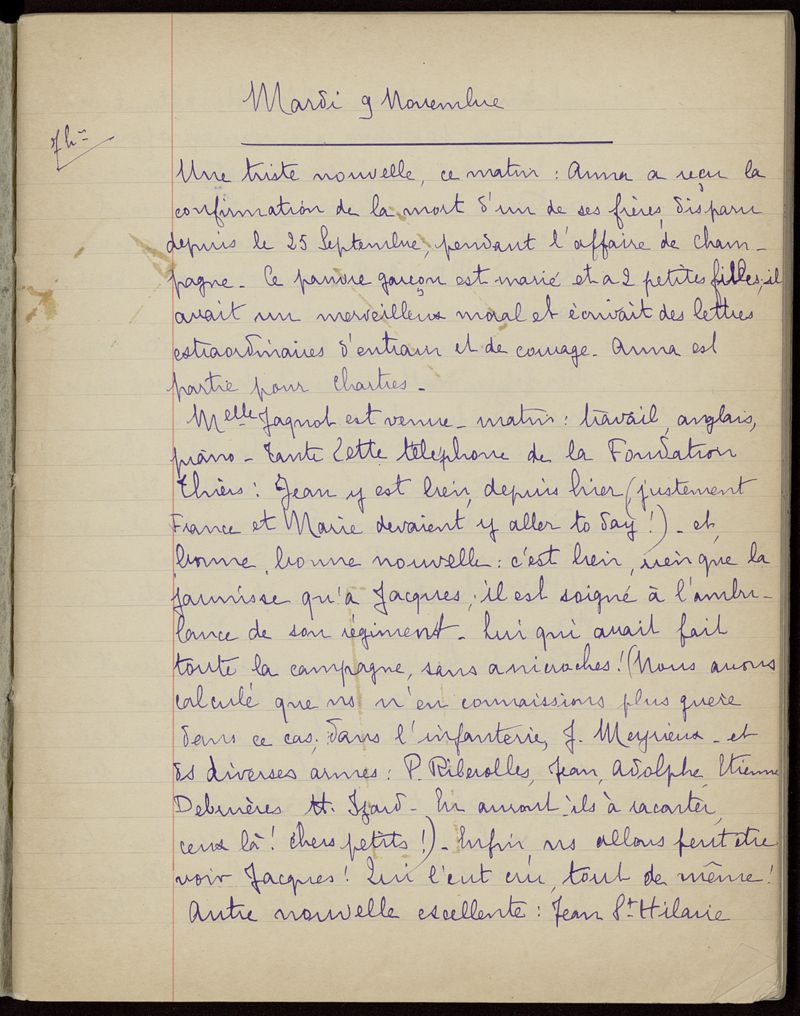 Mardi 9 Novembre
7h=
Une triste nouvelle, ce matin : Anna a reçu la
confirmation de la mort d'un de ses frères, disparu
depuis le 25 Septembre, pendant l'affaire de Cham-
pagne - Ce pauvre garçon est marié et a 2 petites filles, il
avait un merveilleux moral et écrivait des lettres
extraordinaires d'entrain et de courage - Anna est
partie pour Chartres -
Melle Jagnot est venue - matin : travail, anglais,
piano - Tante Cette téléphone de la Fondation
Thiers : Jean y est bien, depuis hier (justement
France et Marie devaient y aller to day !) - et,
bonne, bonne nouvelle : c'est bien, rien que la
jaunisse qu'a Jacques ; il est soigné à l'ambu-
lance de son régiment - Lui qui avait fait
toute la campagne, sans anicroches ! (Nous avons
calculé que ns n'en connaissions plus guère
dans ce cas, dans l'infanterie, J. Meyrieux - et
ds diverses armes : P. Riberolles, Jean, Adolphe, Etienne
Debrières H. Izard - En auront-ils à raconter,
ceux là ! chers petits !) - Enfin, ns allons peut être
voir Jacques ! Qui l'eut cru, tout de même !
Autre nouvelle excellente : Jean St Hilarie